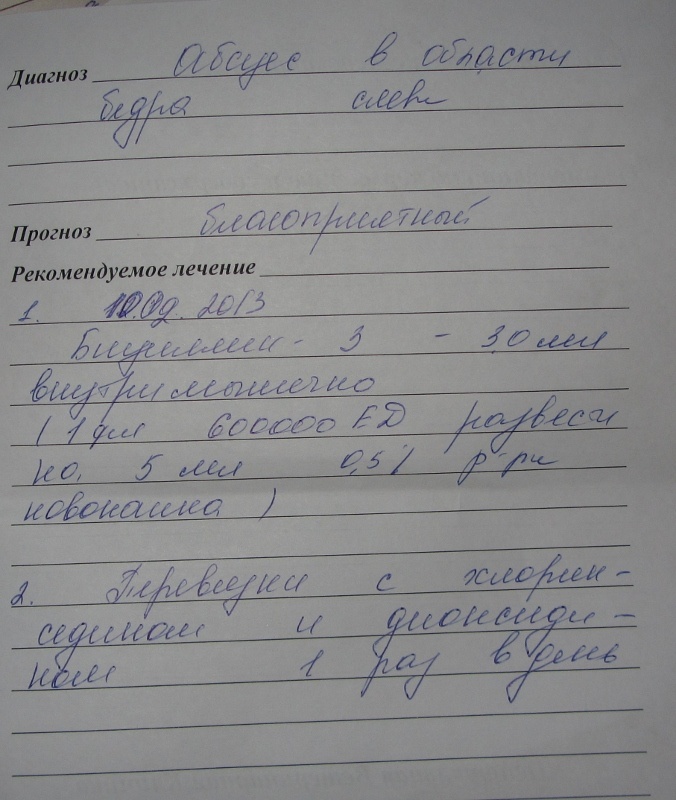 Диагноз Абсцес в области
бедра слева
Прогноз благоприятный
Рекомендуемое лечение
1. 10.09.2013
Бициллин - 3 - 3,0 мл
внутримышечно
(1 фл 600000 ЕД развести
на 5 мл 0,5% р-ра
новокаина)
2. Перевязки с хлоргек-
сидином и диоксиди-
ном 1 раз в день